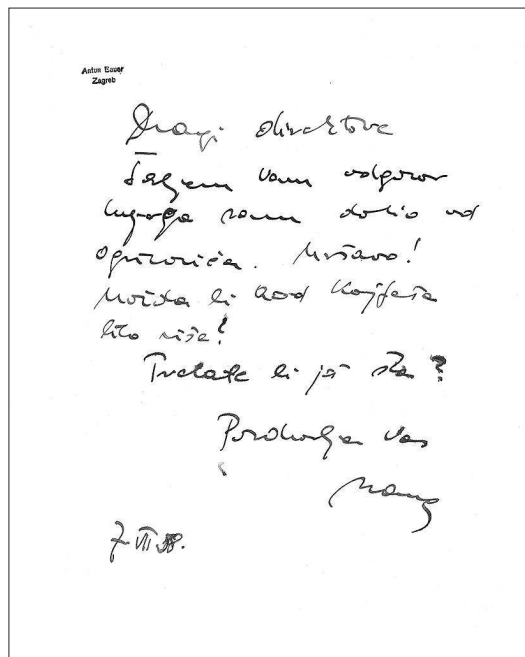 Antun Bauer
Zagreb
Dragi direktore
Šaljem Vam odgovor
kojega sam dobio od
Ogrizovića. Mršavo!
Možda bi kod Kajfeša
bilo više!
Trebate li još šta?
Pozdravlja Vas
7 VII